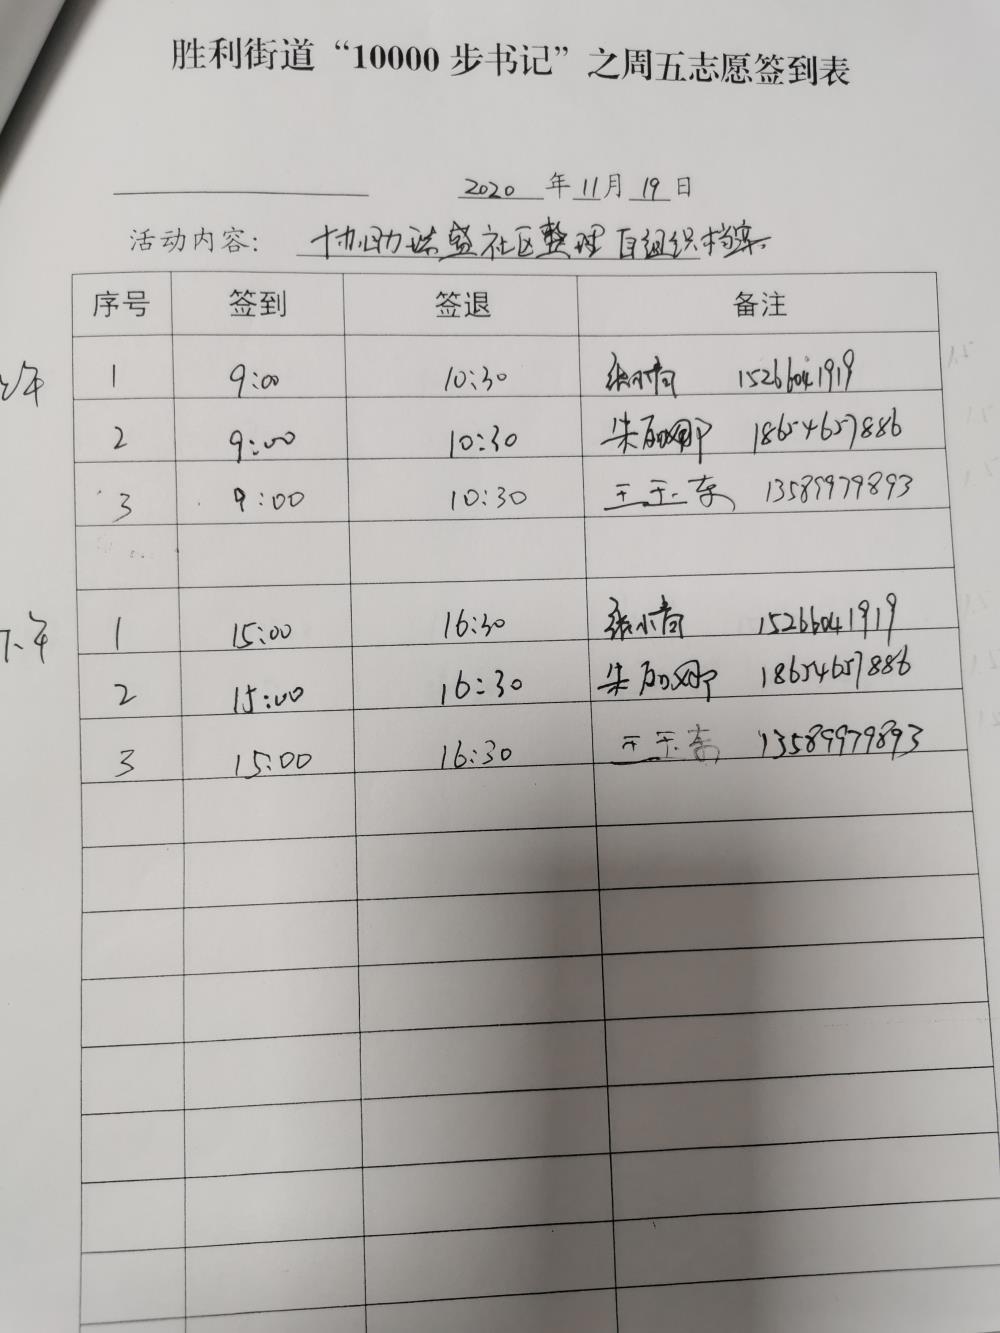 胜利街道“10000步书记”之周五志愿签到表
2020年11月19日
活动内容：协助瑞盛社区整理自组织档案
序号 签到 签退 备注
上午 1 9:00 10:30 15266041919
2 9:00 10:30 朱丽娜 18654657886
3 9:00 10:30 王玉东 13589979893
下午 1 15:00 16:30 15266041919
2 15:00 16:30 朱丽娜 18654657886
3 15:00 16:30 王玉东 13589979893